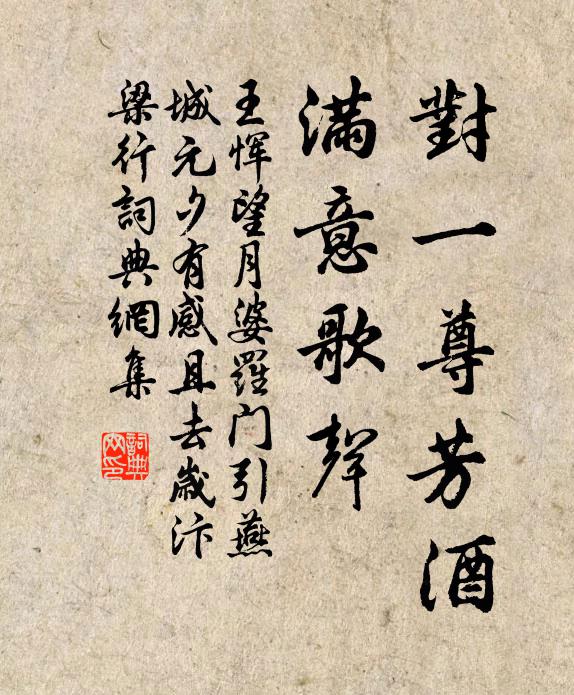 對一尊芳酒
滿意歌聲
王恽望月婆羅门引燕
城元夕有感且去歲汴
梁行詞典網集
詞典網印